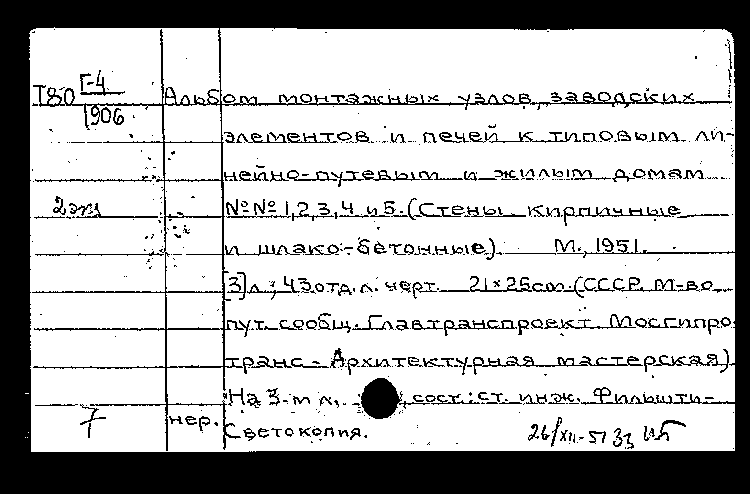 Т80 Г-4
1906
Альбом монтажных узлов, заводских
элементов и печей к типовым ли-
нейно-путевым и жилым домам
2 экз
№№ 1, 2, 3, 4 и 5. (Стены кирпичные
и шлако-бетонные). М., 1951.
[3] л; 43 отд. л. черт. 21×26 cm. (СССР. М-во
пут. сообщ. Главтранспроект. Мосгипро-
транс - Архитектурная мастерская).
На 3-м л. сост.: ст. инж. Фильшти-
7
нер.
Светокопия.
26/XII-51